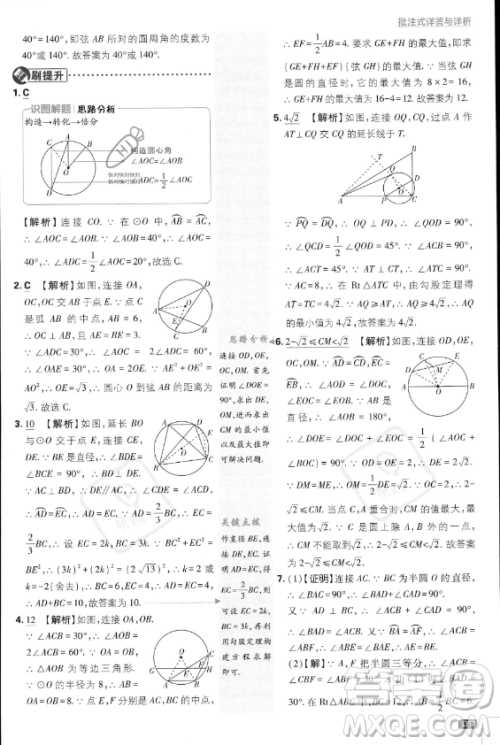 批注式详答与详析
40°=140°，却弦 AB 所对的圆周角的度数为
40°或 140°. 故答案为 40°或 140°.
刷提升
1. C
识图解题 思路分析
构造→转化→倍分
构造圆心角
∠AOC=∠AOB
∠ADC=1/2∠AOC
【解析】连接 CO. ∵ 在⊙O 中，AB=AC，
∴ ∠AOC=∠AOB. ∵ ∠AOB=40°，∴ ∠AOC=
40°，∴ ∠ADC=1/2∠AOC=20°，故选 C.
2. C 【解析】如图，连接 OA，
OC，OC 交 AB 于点 E. ∵ 点 C
是弧 AB 的中点，AB=6，
∴ OC⊥AB，且 AE=BE=3.
∵ ∠ADC=30°，∴ ∠AOC=2∠ADC=60°，
∴ ∠OAE=30°，∴ OE=1/2OA. ∵ AE²+OE²=
AO²，∴ OE=√3，∴ 圆心 O 到弦 AB 的距离为
√3. 故选 C.
3. 10 【解析】如图，延长 BO
与⊙O 交于点 D，连接 EC，
DE. ∵ BD 是直径，∴ ∠BDE=
∠BCE=90°，∴ DE⊥BD.
∵ AC⊥BD，∴ DE∥AC，
∴ AD=EC，∴ AD=EC. ∵ AD=2/3BC，∴ EC=
2/3BC，∴ 设 EC=2k，BC=3k. ∵ BC²+EC²=
BE²，∴ (3k)²+(2k)²=(2√13)²，∴ k=2 或
k=-2(舍去)，∴ BC=6，EC=4，AD=EC=4，
∴ AD+BC=10. 故答案为 10.
4. 12 【解析】如图，连接 OA，
OB. ∵ ∠ACB=30°，∴ ∠AOB=
2∠ACB=60°. ∵ OA=OB，
∴ △AOB 为等边三角形.
∵ ⊙O 的半径为 8，∴ AB=OA=
OB=8. ∵ 点 E，F 分别是 AC，BC 的中点，
思路分析
连接 OD，OE，
OC，OM，首先
证明 ∠DOE=
90°，求出 DE，
CM 的最小值
以及最大值即
可解决问题.
关键点拨
由直径所对的
EC=2/3BC，
可设 EC=2k，
BC=3k，再利
用勾股定理构
建方程求解
∴ EF=1/2AB=4. 要求 GE+FH 的最大值，即求
(GE+FH+EF)(弦 GH)的最大值，∴ 当弦 GH
是圆的直径时，它的最大值为 8×2=16，
∴ GE+FH 的最大值为 16-4=12. 故答案为 12.
5. 4√2 【解析】如图，连接 OQ，CQ，过点 A 作
AT⊥CQ 交 CQ 的延长线于 T.
∵ PQ=DQ，∴ PQ=DQ，∴ ∠COD=90°，
∴ ∠QCD=1/2∠QOD=45°. ∵ ∠ACD=90°，
∴ ∠ACT=45°. ∵ AT⊥CT，∴ ∠ATC=90°.
∵ AC=8，∴ 在 Rt△ATC 中，由勾股定理得
AT=4√2. ∵ AQ≥AT，∴ AQ≥4√2，∴ AQ
的最小值为 4√2. 故答案为 4√2.
6. 2-√2≤CM<√2 【解析】如图，连接 OD，OE，
OC，OM. ∵ AD=CD，EC=
BE，∴ ∠AOD=∠COD，
∠EOC=∠EOB. ∵ AB 是
直径，∴ ∠AOB=180°，
∴ ∠DOE=∠DOC+∠EOC=1/2(∠AOC+
∠BOC)=90°，∴ DE=√2OD=2√2.
∴ OM=1/2DE=√2. 当点 C 与点 A 重合时，CM 有最
大值为√2. ∵ 2-√2≤CM≤√2. ∵ 点 C 不与点 A，
B 重合，∴ 2-√2≤CM<√2. 故答案
为 2-√2≤CM<√2.
7. (1)【证明】连接 AC. ∵ BC 为半圆 O 的直径，
∴ ∠BAC=90°，∴ ∠ACB+∠ABC=90°.
又∵ AD⊥BC，∴ ∠ADB=90°，
∴ ∠BAD+∠ABC=90°，
∴ ∠BAD=∠ACB. 又∵ BA=AF，
∴ ∠ACB=∠ABF，∴ ∠BAD=∠ABF，
∴ AE=BE.
(2)【解】∵ A，F 把半圆三等分，
∴ ∠ACB=∠CBF=∠ABF=30°，
∴ ∠BAD=∠ACB=30°，